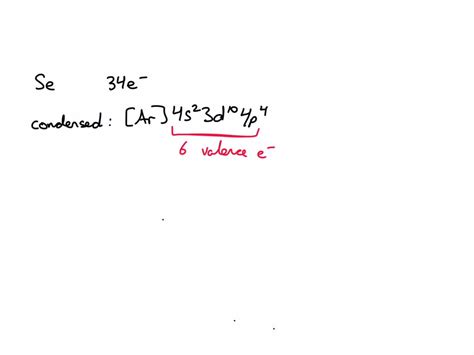 Se 34e⁻
condensed: [Ar] 4s² 3d¹⁰ 4p⁴
6 valence e⁻